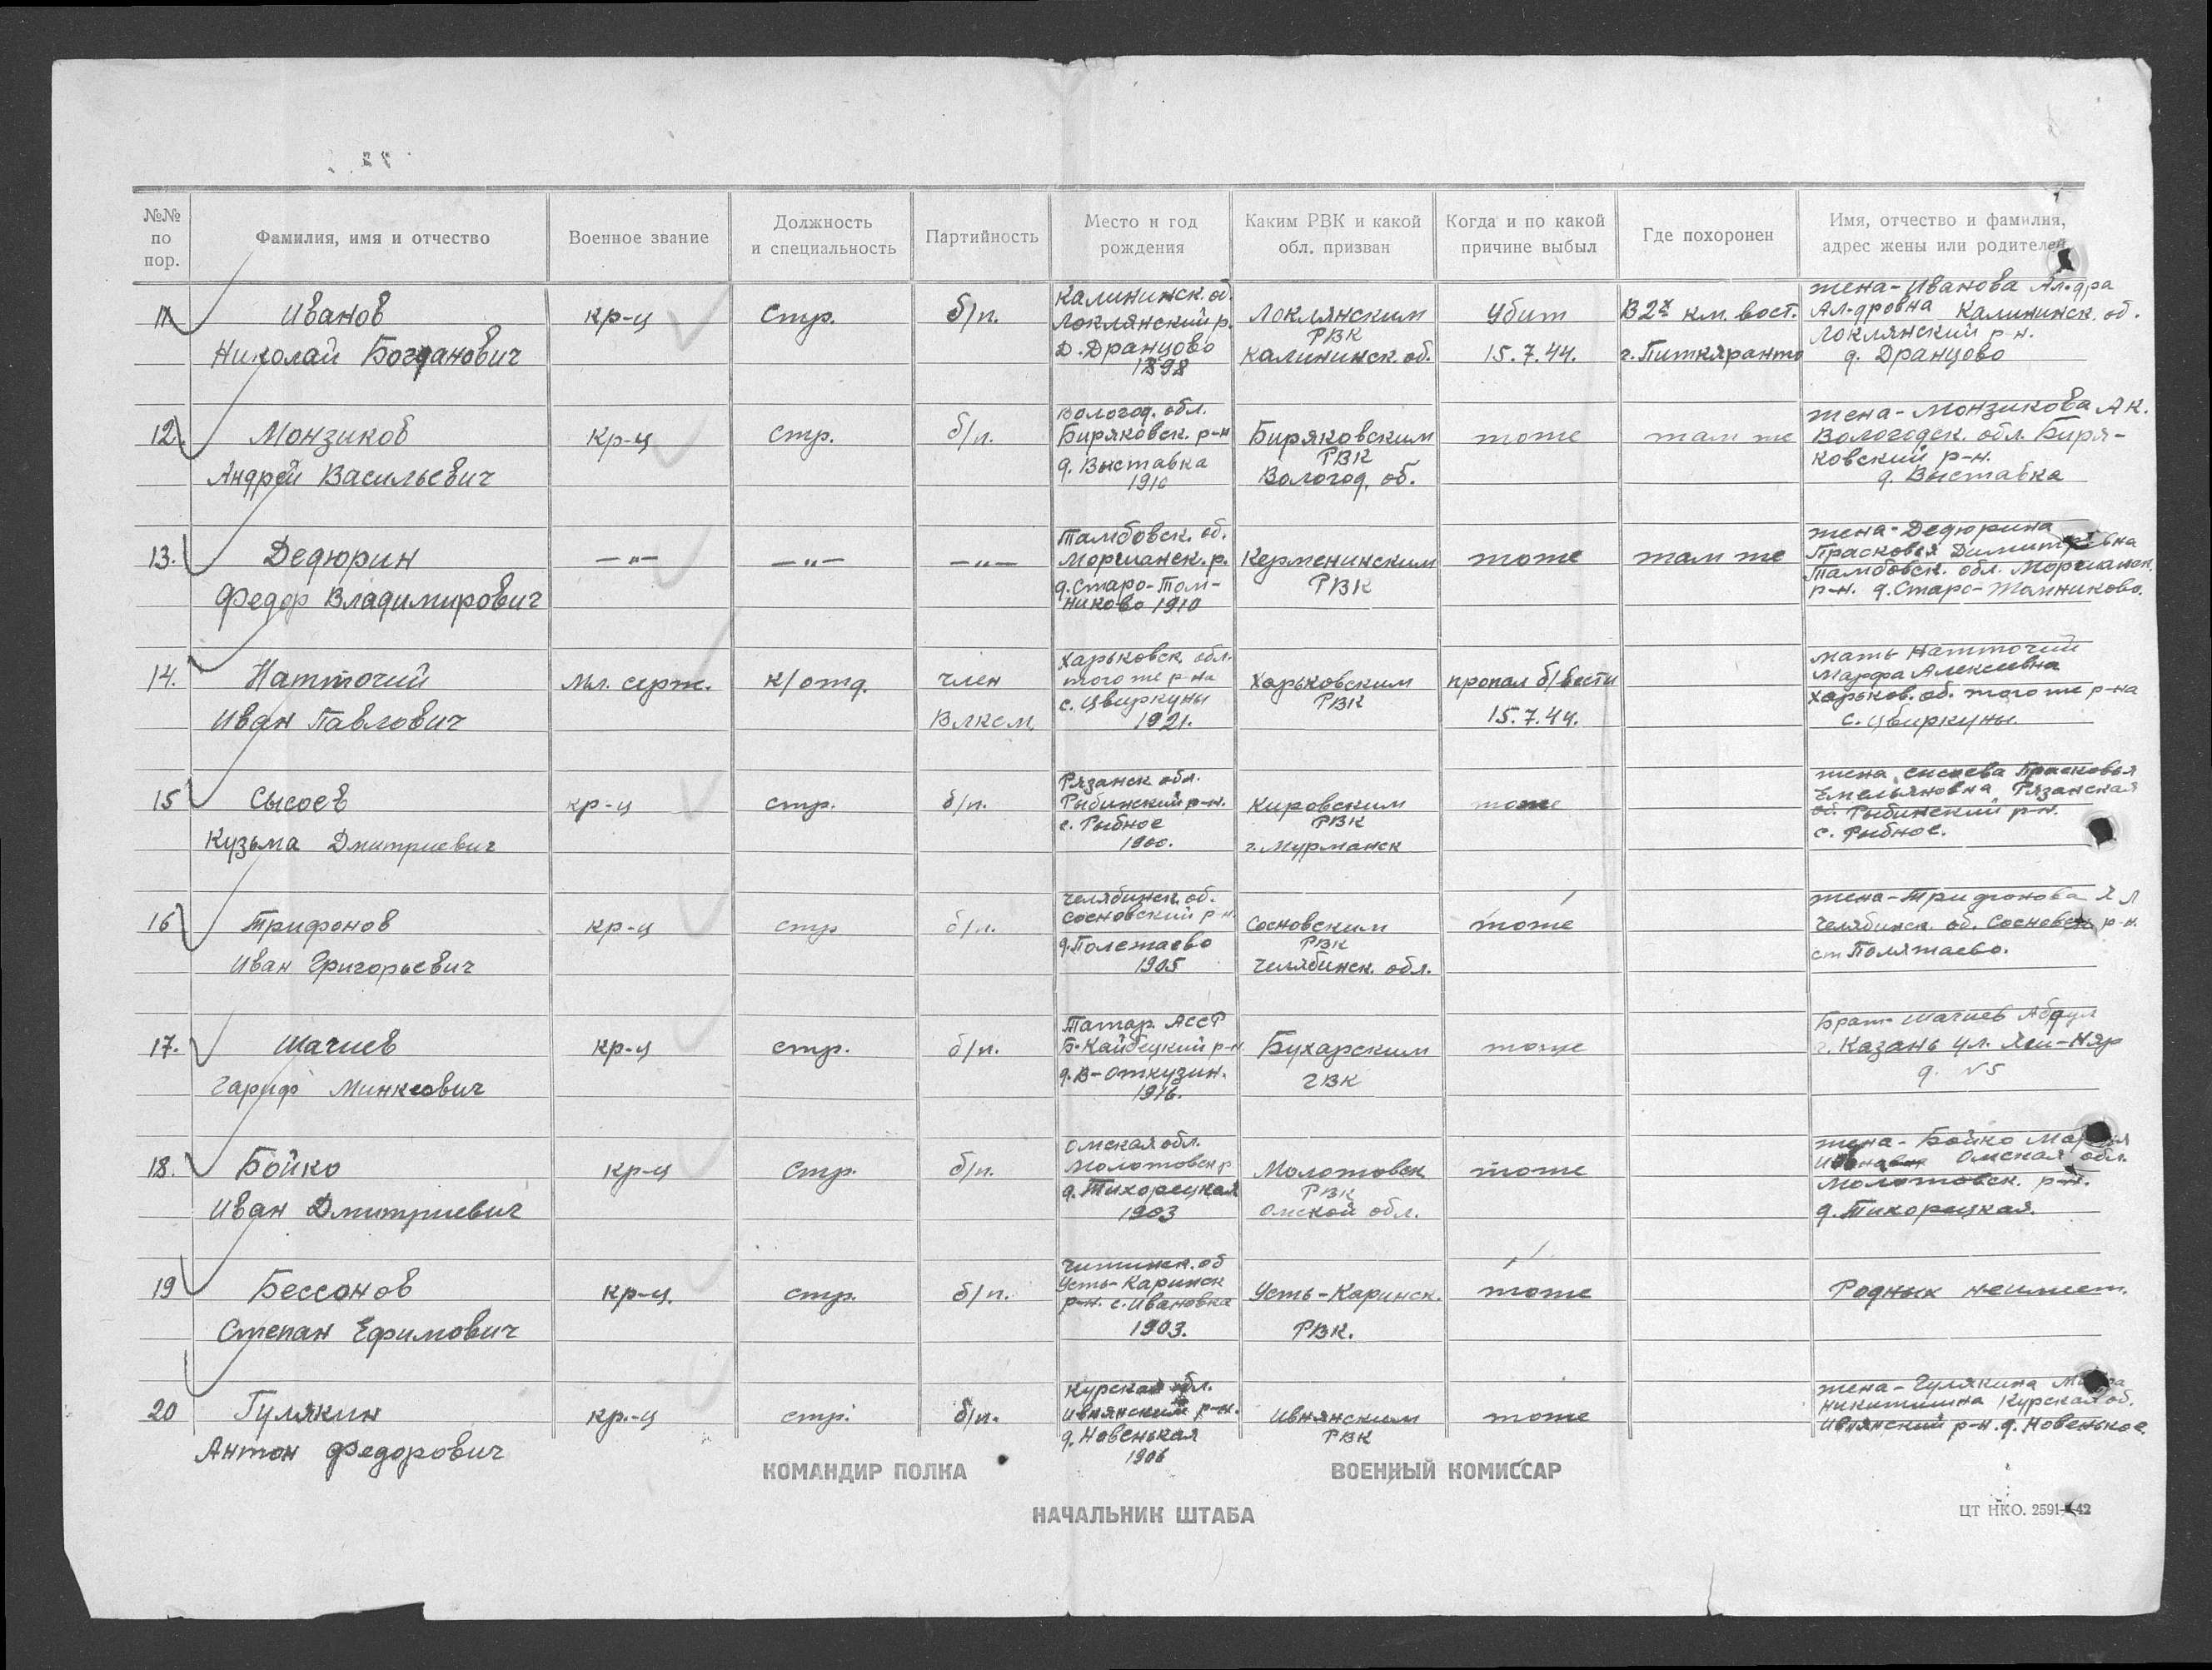 №№ по пор.
Фамилия, имя и отчество
Военное звание
Должность и специальность
Партийность
Место и год рождения
Каким РВК и какой обл. призван
Когда и по какой причине выбыл
Где похоронен
Имя, отчество и фамилия, адрес жены или родителей
11.
Иванов
Николай Богданович
кр-ц
Стр.
б/п.
Калининск. об.
Локлянский р.
Д. Дранцово
1898
Локлянским
РВК
Калининск. об.
Убит
15.7.44.
В 2х км. вост.
г. Питкяранто
жена - Иванова Ал-дра
Ал-дровна Калининск. об.
Локлянский р-н.
д. Дранцово
12.
Монзиков
Андрей Васильевич
кр-ц
Стр.
б/п.
Вологод. обл.
Биряковск. р-н
д. Выставка
1910
Биряковским
РВК
Вологод. об.
тоже
там же
жена - Монзикова А к.
Вологодск. обл. Биря-
ковский р-н.
д. Выставка
13.
Дедюрин
Федор Владимирович
—„—
—„—
—„—
Тамбовск. об.
Моршанск. р.
д. Старо-Том-
никово 1910
Керменинским
РВК
тоже
там же
жена - Дедюрина
Прасковья
Тамбовск. обл. Моршанск.
р-н. д. Старо-Томниково.
14.
Натточий
Иван Павлович
Мл. серж.
к/отд.
член
Влксм.
Харьковск. обл.
того же р-на
с. Цвиркуны
1921.
Харьковским
РВК
пропал б/вести
15.7.44.
мать Натточий
Марфа Алексеевна
Харьков. об. того же р-на
с. Цвиркуны.
15
Сысоев
Кузьма Дмитриевич
кр-ц
стр.
б/п.
Рязанск обл.
Рыбинский р-н.
с. Рыбное
1900.
Кировским
РВК
г. Мурманск
тоже
жена Сысоева Прасковья
Емельяновна Рязанская
об. Рыбинский р-н.
с. Рыбное.
16
Трифонов
Иван Григорьевич
кр-ц
стр
б/п.
Челябинск. об.
Сосновский р-н.
д. Полетаево
1905
Сосновским
РВК
Челябинск. обл.
тоже
жена - Трифонова
Челябинск. об. Сосновск р-н.
ст Полятаево.
17.
Шагиев
Гариф
кр-ц
стр.
б/п.
Татар. АССР
Б-Кайбецкий р-н
1916.
Бухарским
ГВК
тоже
Брат Шагиев Абдул
г. Казань ул.
д. №5
18.
Бойко
Иван Дмитриевич
кр-ц
Стр.
б/п.
Омская обл.
Молотовск р
д. Тихорецкая
1903
Молотовск
РВК
Омской обл.
тоже
жена - Бойко
Омская обл.
Молотовск. р-н.
д. Тихорецкая.
19
Бессонов
Степан Ефимович
кр-ц.
стр.
б/п.
Читинск. об
Усть-Каринск
р-н. с. Ивановка
1903.
Усть-Каринск.
РВК.
тоже
Родных неимеет.
20
Гулякин
Антон Федорович
кр-ц
стр.
б/п.
Курская обл.
Ивнянский р-н.
д. Новенькая
1906
Ивнянским
РВК
тоже
жена - Гулякина
Никитишна Курская об.
Ивнянский р-н. д. Новенькое.
КОМАНДИР ПОЛКА
ВОЕННЫЙ КОМИССАР
НАЧАЛЬНИК ШТАБА
ЦТ НКО. 2591-42